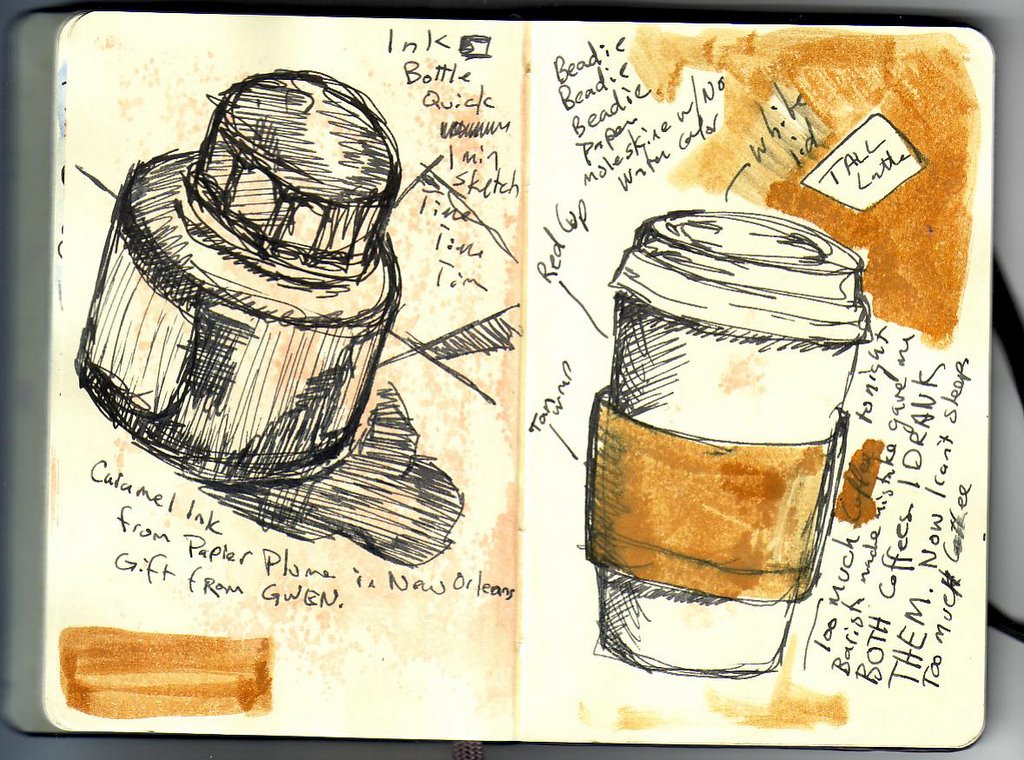 Ink
Bottle
Quick
1 min
Sketch
Time
Time
Tim
Caramel Ink
from Papier Plume in New Orleans
Gift from GWEN.
Beadie
Beadie
Beadie
paper
moleskine w/ No
water color
white
lid
TALL
Latte
Red Cup
Tan
Coffee
Too much tonight
Barista made mistake gave me
BOTH Coffees. I DRANK
THEM. NOW I can't sleep
Too much Coffee